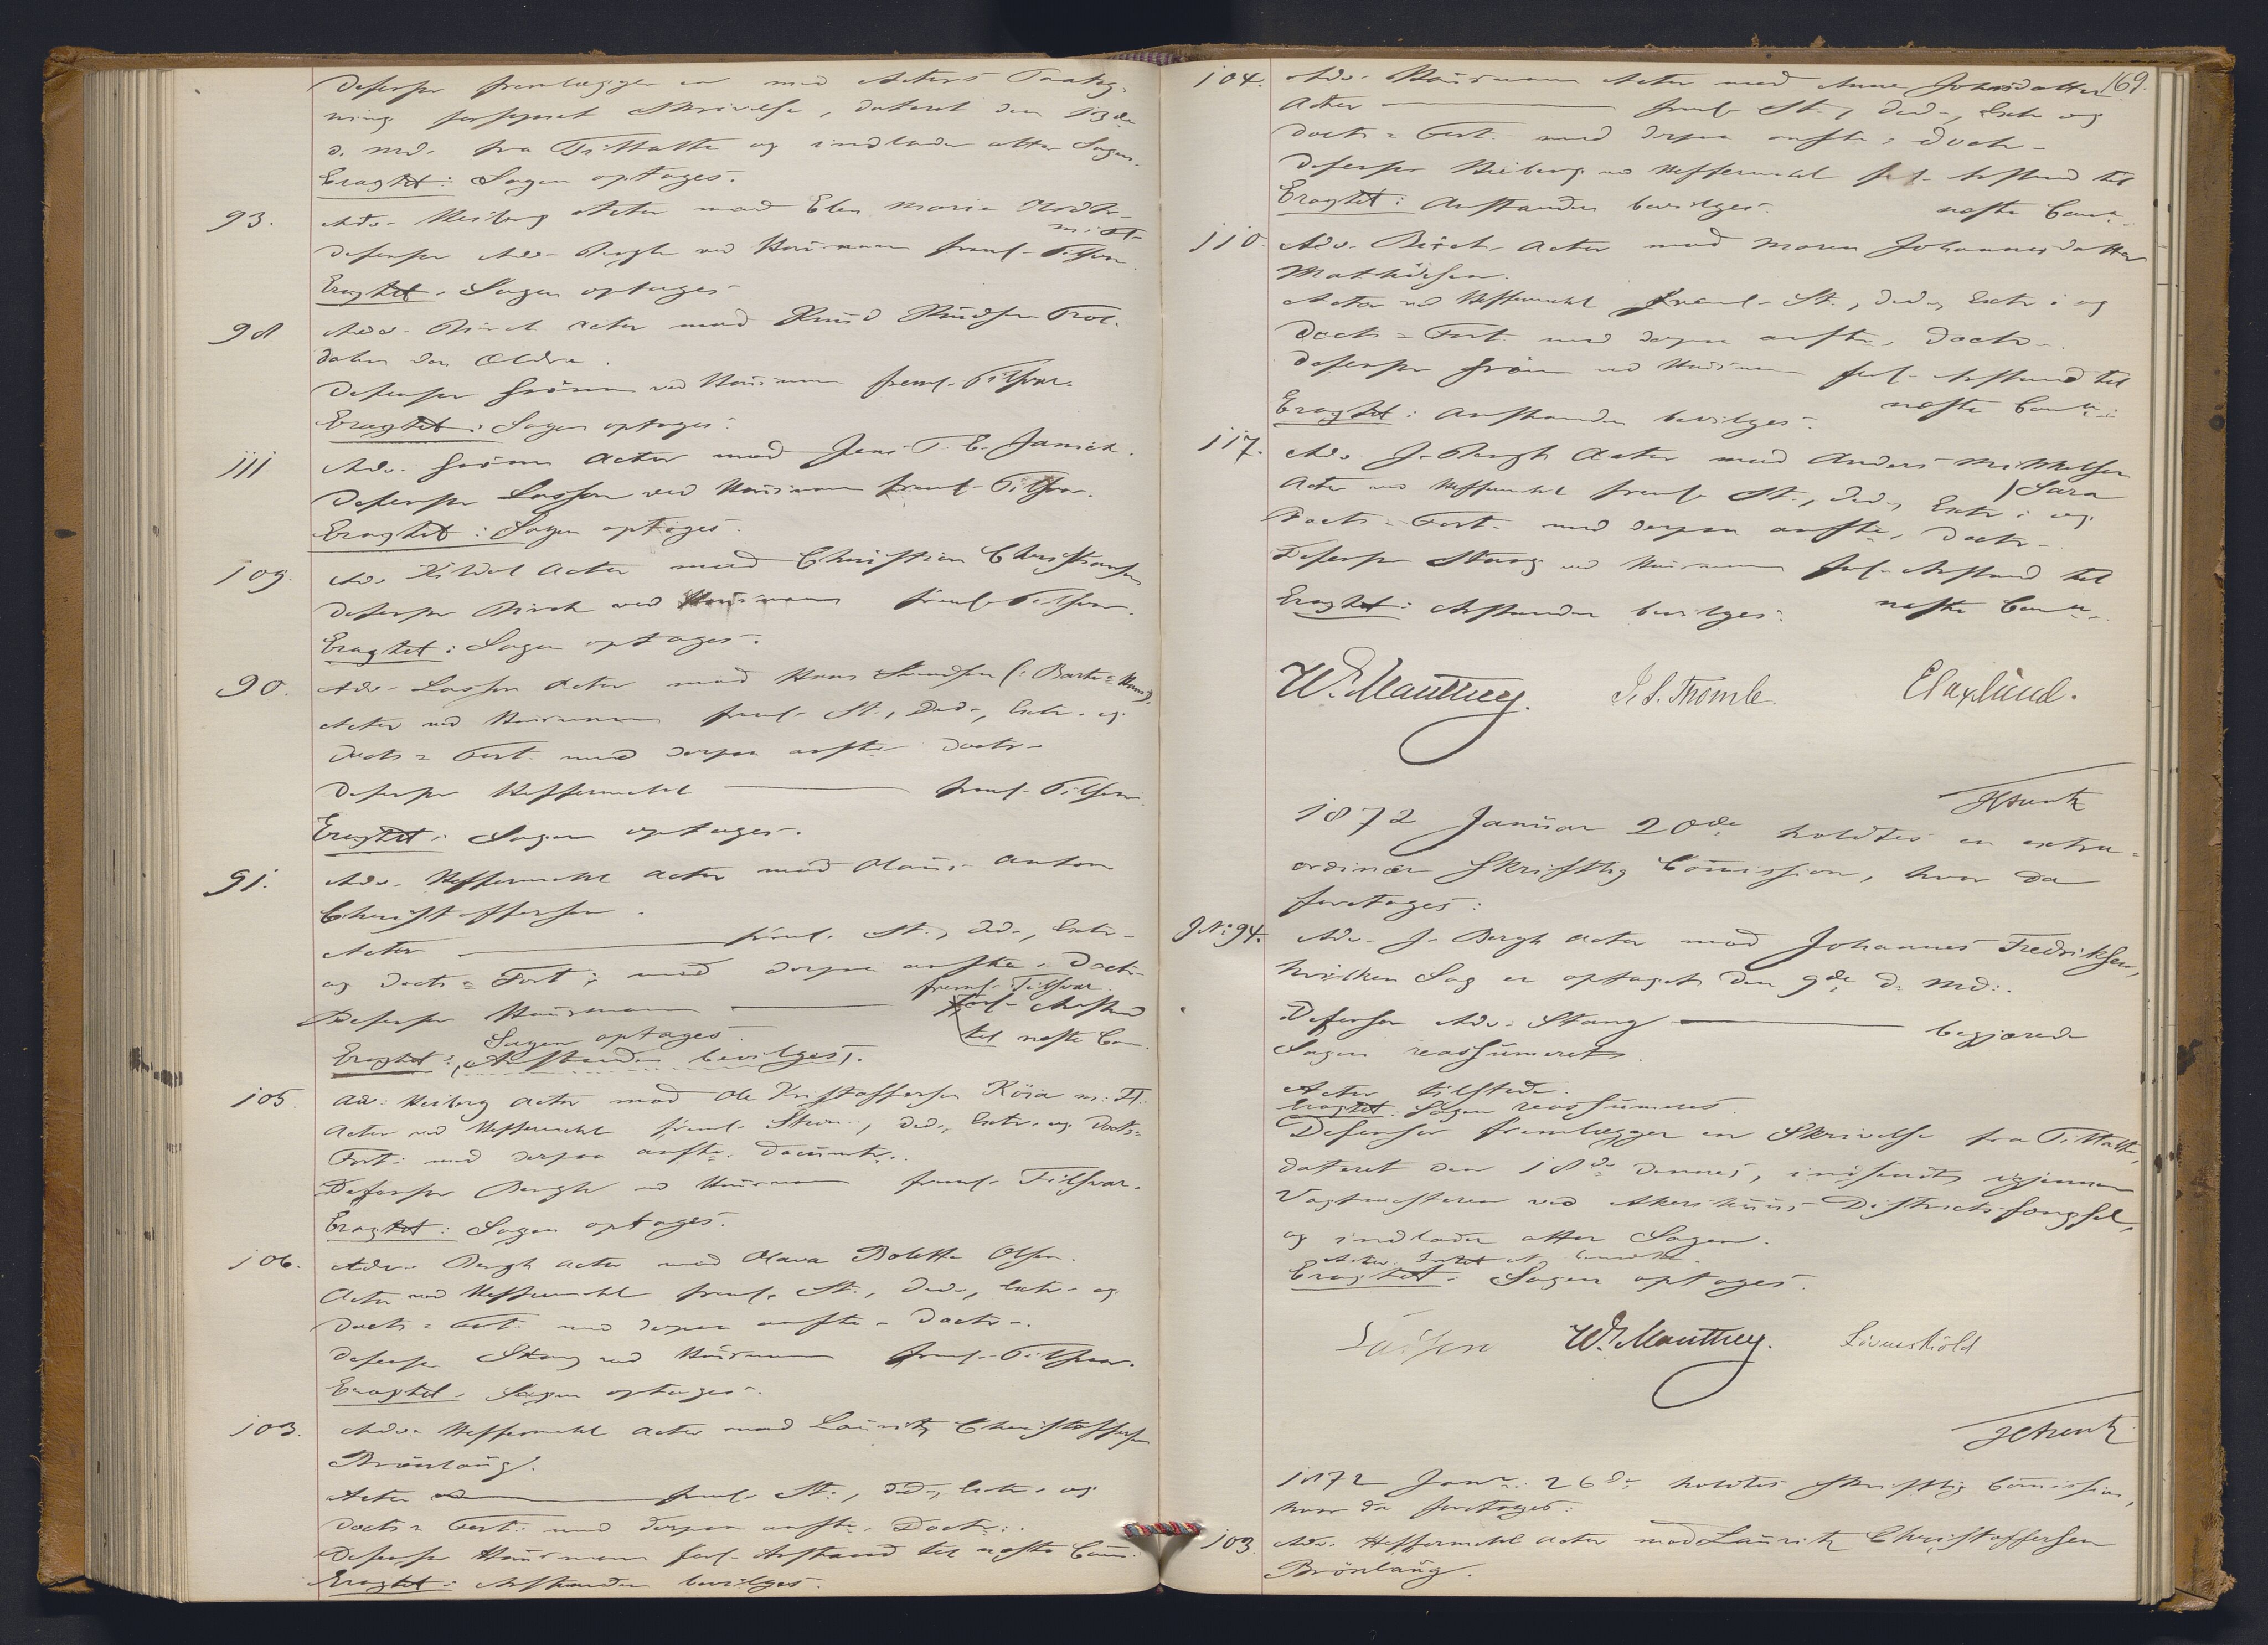 Defensor fremlægger en med Actors Paateg-
ning forsynet Skrivelse, dateret den 13de
d. Md. fra Tiltalte og indlader atter Sagen.
Eragtet: Sagen optages.
93. Adv. Heiberg Actor mod Elen Maria
m: Fl.
Defensor Adv. Bergh ved Haûsmann freml. Tilsvar.
Eragtet: Sagen optages.
98 Adv. Birch Actor mod Knûd Knûdsen Trol-
dalen den Ældre.
Defensor Grönn ved Haûsmann freml. Tilsvar.
Eragtet: Sagen optages.
111 Adv. Grönn Actor mod Jens T. E. Jansen.
Defensor Lasson ved Haûsmann freml. Tilsvar.
Eragtet: Sagen optages.
109. Adv. Kildal Actor mod Christian Christiansen
Defensor Birch ved Haûsmann freml. Tilsvar.
Eragtet: Sagen optages.
90. Adv. Lasson Actor mod Hans
Actor ved Haûsmann freml. St., Ded., Extr. og
Docts = Fort. med derpaa anfte Docts.
Defensor Heffermehl freml. Tilsvar.
Eragtet: Sagen optages.
91. Adv. Heffermehl Actor mod Olaûs Anton
Christoffersen.
Actor freml. St., Ded., Extr.
og Docts = Fort: med derpaa anfte Docts.
freml. Tilsvar.
Defensor Haûsmann forl. Anstand
Sagen optages. til næste Com.
Eragtet: (Anstanden bevilges).
105. Adv: Heiberg Actor mod Ole Kristoffersen Röia m: Fl:
Actor ved Heffermehl freml. Stevn., Ded., Extr. og Docts =
Fort: med derpaa anfte. Docûmtr.
Defensor Bergh ved Haûsmann freml. Tilsvar.
Eragtet: Sagen optages.
106. Adv. Bergh Actor mod Olava Bolette Olsen.
Actor ved Heffermehl freml. St., Ded., Extr. og
Docts = Fort. med derpaa anfte Docts.
Defensor Stang ved Haûsmann freml. Tilsvar.
Eragtet. Sagen optages.
103. Adv. Heffermehl Actor mod Laûritz Christoffersen
Brönlaûg.
Actor freml. St., Ded., Extr. og
Docts = Fort: med derpaa anfte. Docts:
Defensor Haûsmann forl. Anstand til næste Com:
Eragtet: Anstanden bevilges.
169.
104. Adv. Haûsmann Actor mod Anne Johnsdatter
Actor freml. St., Ded., Extr og
Docts = Fort. med derpaa anfte. Docts.
Defensor Heiberg ved Heffermehl forl. Anstand til
næste Com.
Eragtet: Anstanden bevilges.
110. Adv. Birch Actor mod Maren Johannesdatter
Mathiesen.
Actor ved Heffermehl freml. St., Ded., Extr: og
Docts = Fort. med derpaa anfte. Docts.
Defensor Grönn ved Haûsmann forl. Anstand til
næste Com.
Eragtet: Anstanden bevilges.
117. Adv. J. Bergh Actor mod Anders Mikkelsen
Sara
Actor ved Heffermehl freml. St., Ded., Extr: og
Docts = Fort. med derpaa anfte, Docts.
Defensor Stang ved Haûsmann forl. Anstand til
næste Com.
Eragtet: Anstanden bevilges.
W. Manthey. I. S. Thomle. C Haxlûnd.
1872 Janûar 20de holdtes en extra-
ordinær Skriftlig Commission, hvor da
foretoges:
J. No 94. Adv. J. Bergh Actor mod Johannes Fredriksen,
hvilken Sag er optaget den 9de d. Md:.
Defensor Adv: Stang begjærede
Sagen reassûmeret.
Actor tilstede.
Eragtet: Sagen reassûmeres.
Defensor fremlægger en Skrivelse fra Tiltalte,
dateret den 18de dennes, indsendt igjennem
Vagtmesteren ved Akershûûs Districtsfængsel,
og indlader atter Sagen.
Actor: Intet at bemærke.
Eragtet: Sagen optages.
W. Manthey. Lövenskiold
1872 Janr. 26de holdtes skriftlig Commission,
hvor da foretoges:
103. Adv. Heffermehl Actor mod Laûritz Christoffersen
Brönlaûg.